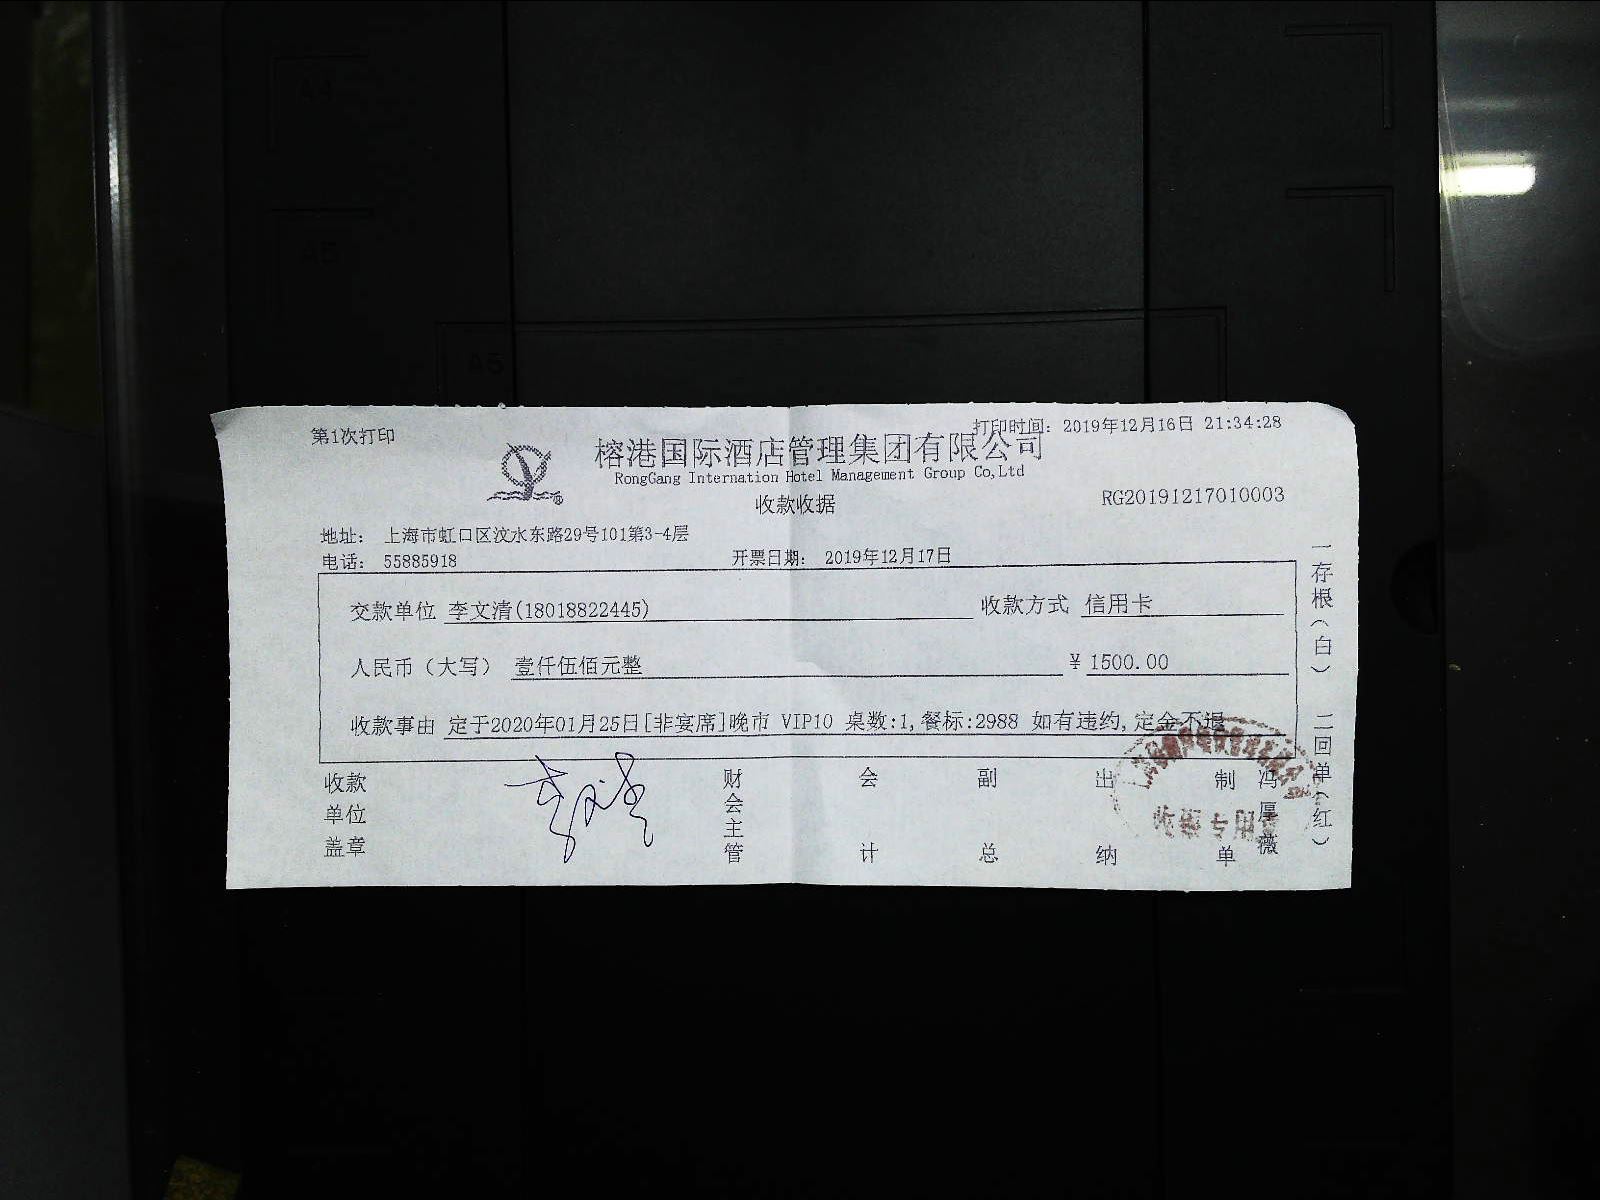 A4
A5
A6
第1次打印
打印时间: 2019年12月16日 21:34:28
榕港国际酒店管理集团有限公司
RongGang Internation Hotel Management Group Co,Ltd
收款收据
RG20191217010003
地址: 上海市虹口区汶水东路29号101第3-4层
电话: 55885918
开票日期: 2019年12月17日
交款单位 李文清(18018822445) 收款方式 信用卡
人民币（大写） 壹仟伍佰元整 ¥ 1500.00
收款事由 定于2020年01月25日[非宴席]晚市 VIP10 桌数:1,餐标:2988 如有违约,定金不退
收款单位盖章
李文清
财会主管
会计
副总
出纳
制单
冯厚薇
一存根（白） 二回单（红）
专用